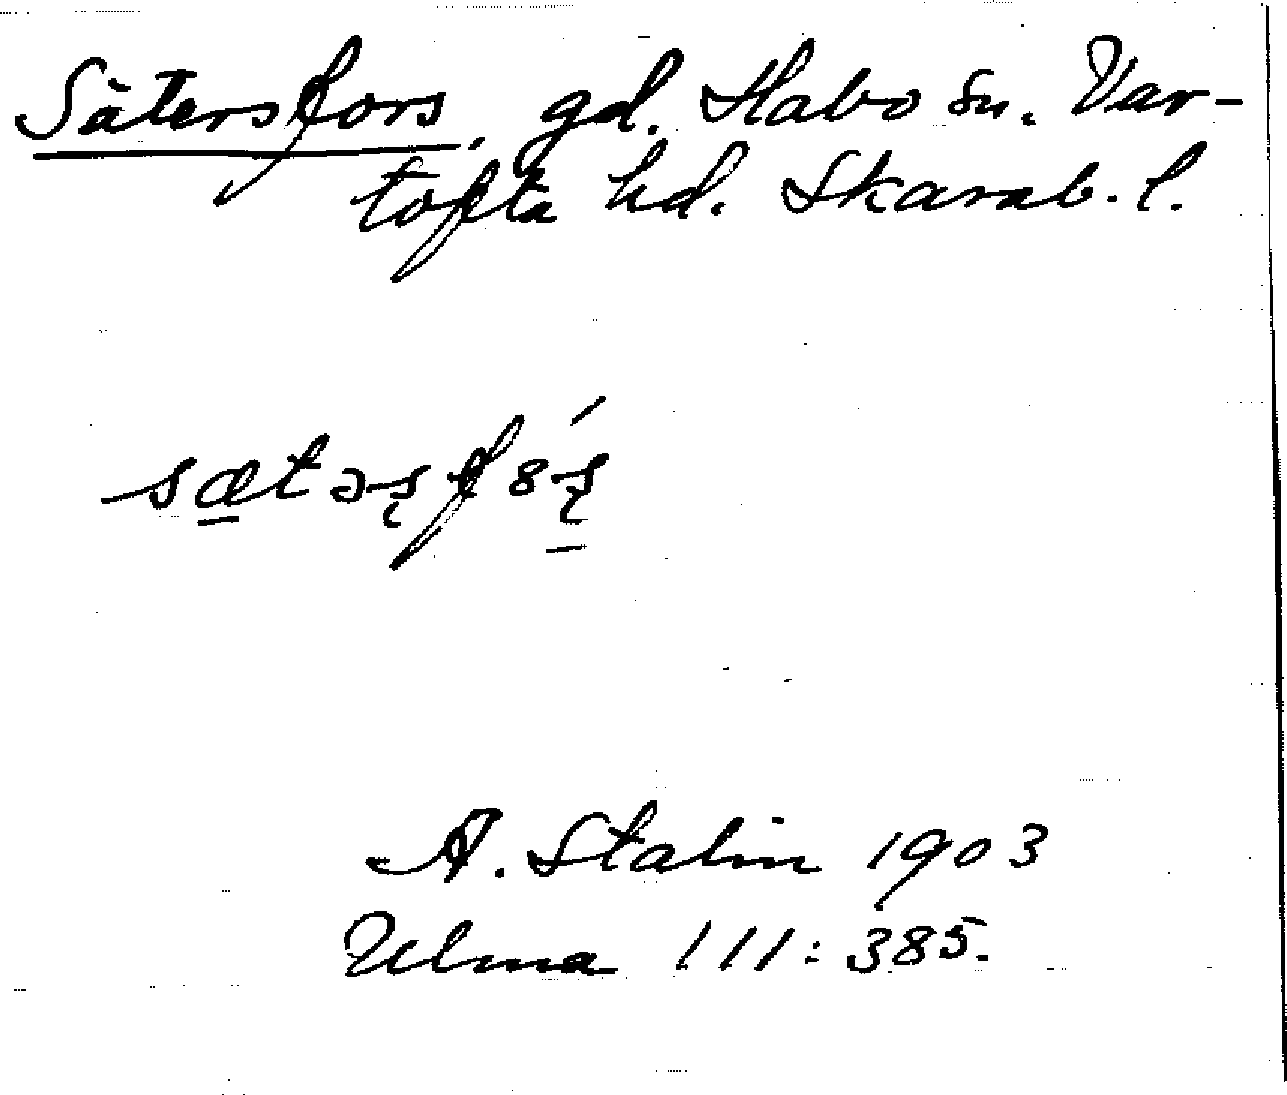 Sätersfors, gd. Habo sn. Var-
tofta hd. Skarab. l.
sætəʂfȣ́ʂ
A. Stalin 1903
Ulma 111:385.